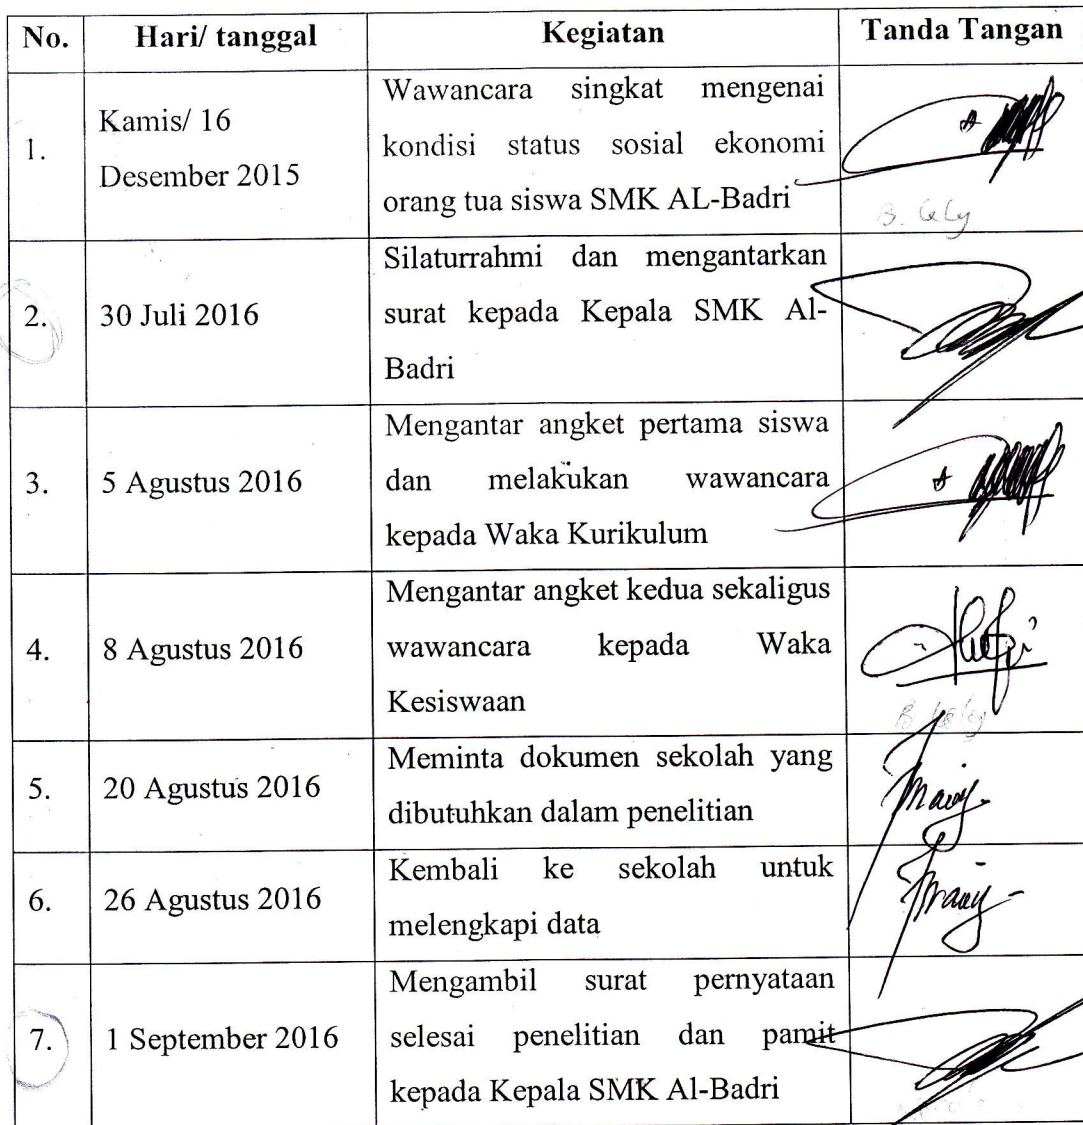 No. Hari/ tanggal Kegiatan Tanda Tangan
1. Kamis/ 16 Desember 2015
Wawancara singkat mengenai
kondisi status sosial ekonomi
orang tua siswa SMK AL-Badri
2. 30 Juli 2016
Silaturrahmi dan mengantarkan
surat kepada Kepala SMK Al-
Badri
3. 5 Agustus 2016
Mengantar angket pertama siswa
dan melakukan wawancara
kepada Waka Kurikulum
4. 8 Agustus 2016
Mengantar angket kedua sekaligus
wawancara kepada Waka
Kesiswaan
5. 20 Agustus 2016
Meminta dokumen sekolah yang
dibutuhkan dalam penelitian
6. 26 Agustus 2016
Kembali ke sekolah untuk
melengkapi data
7. 1 September 2016
Mengambil surat pernyataan
selesai penelitian dan pamit
kepada Kepala SMK Al-Badri